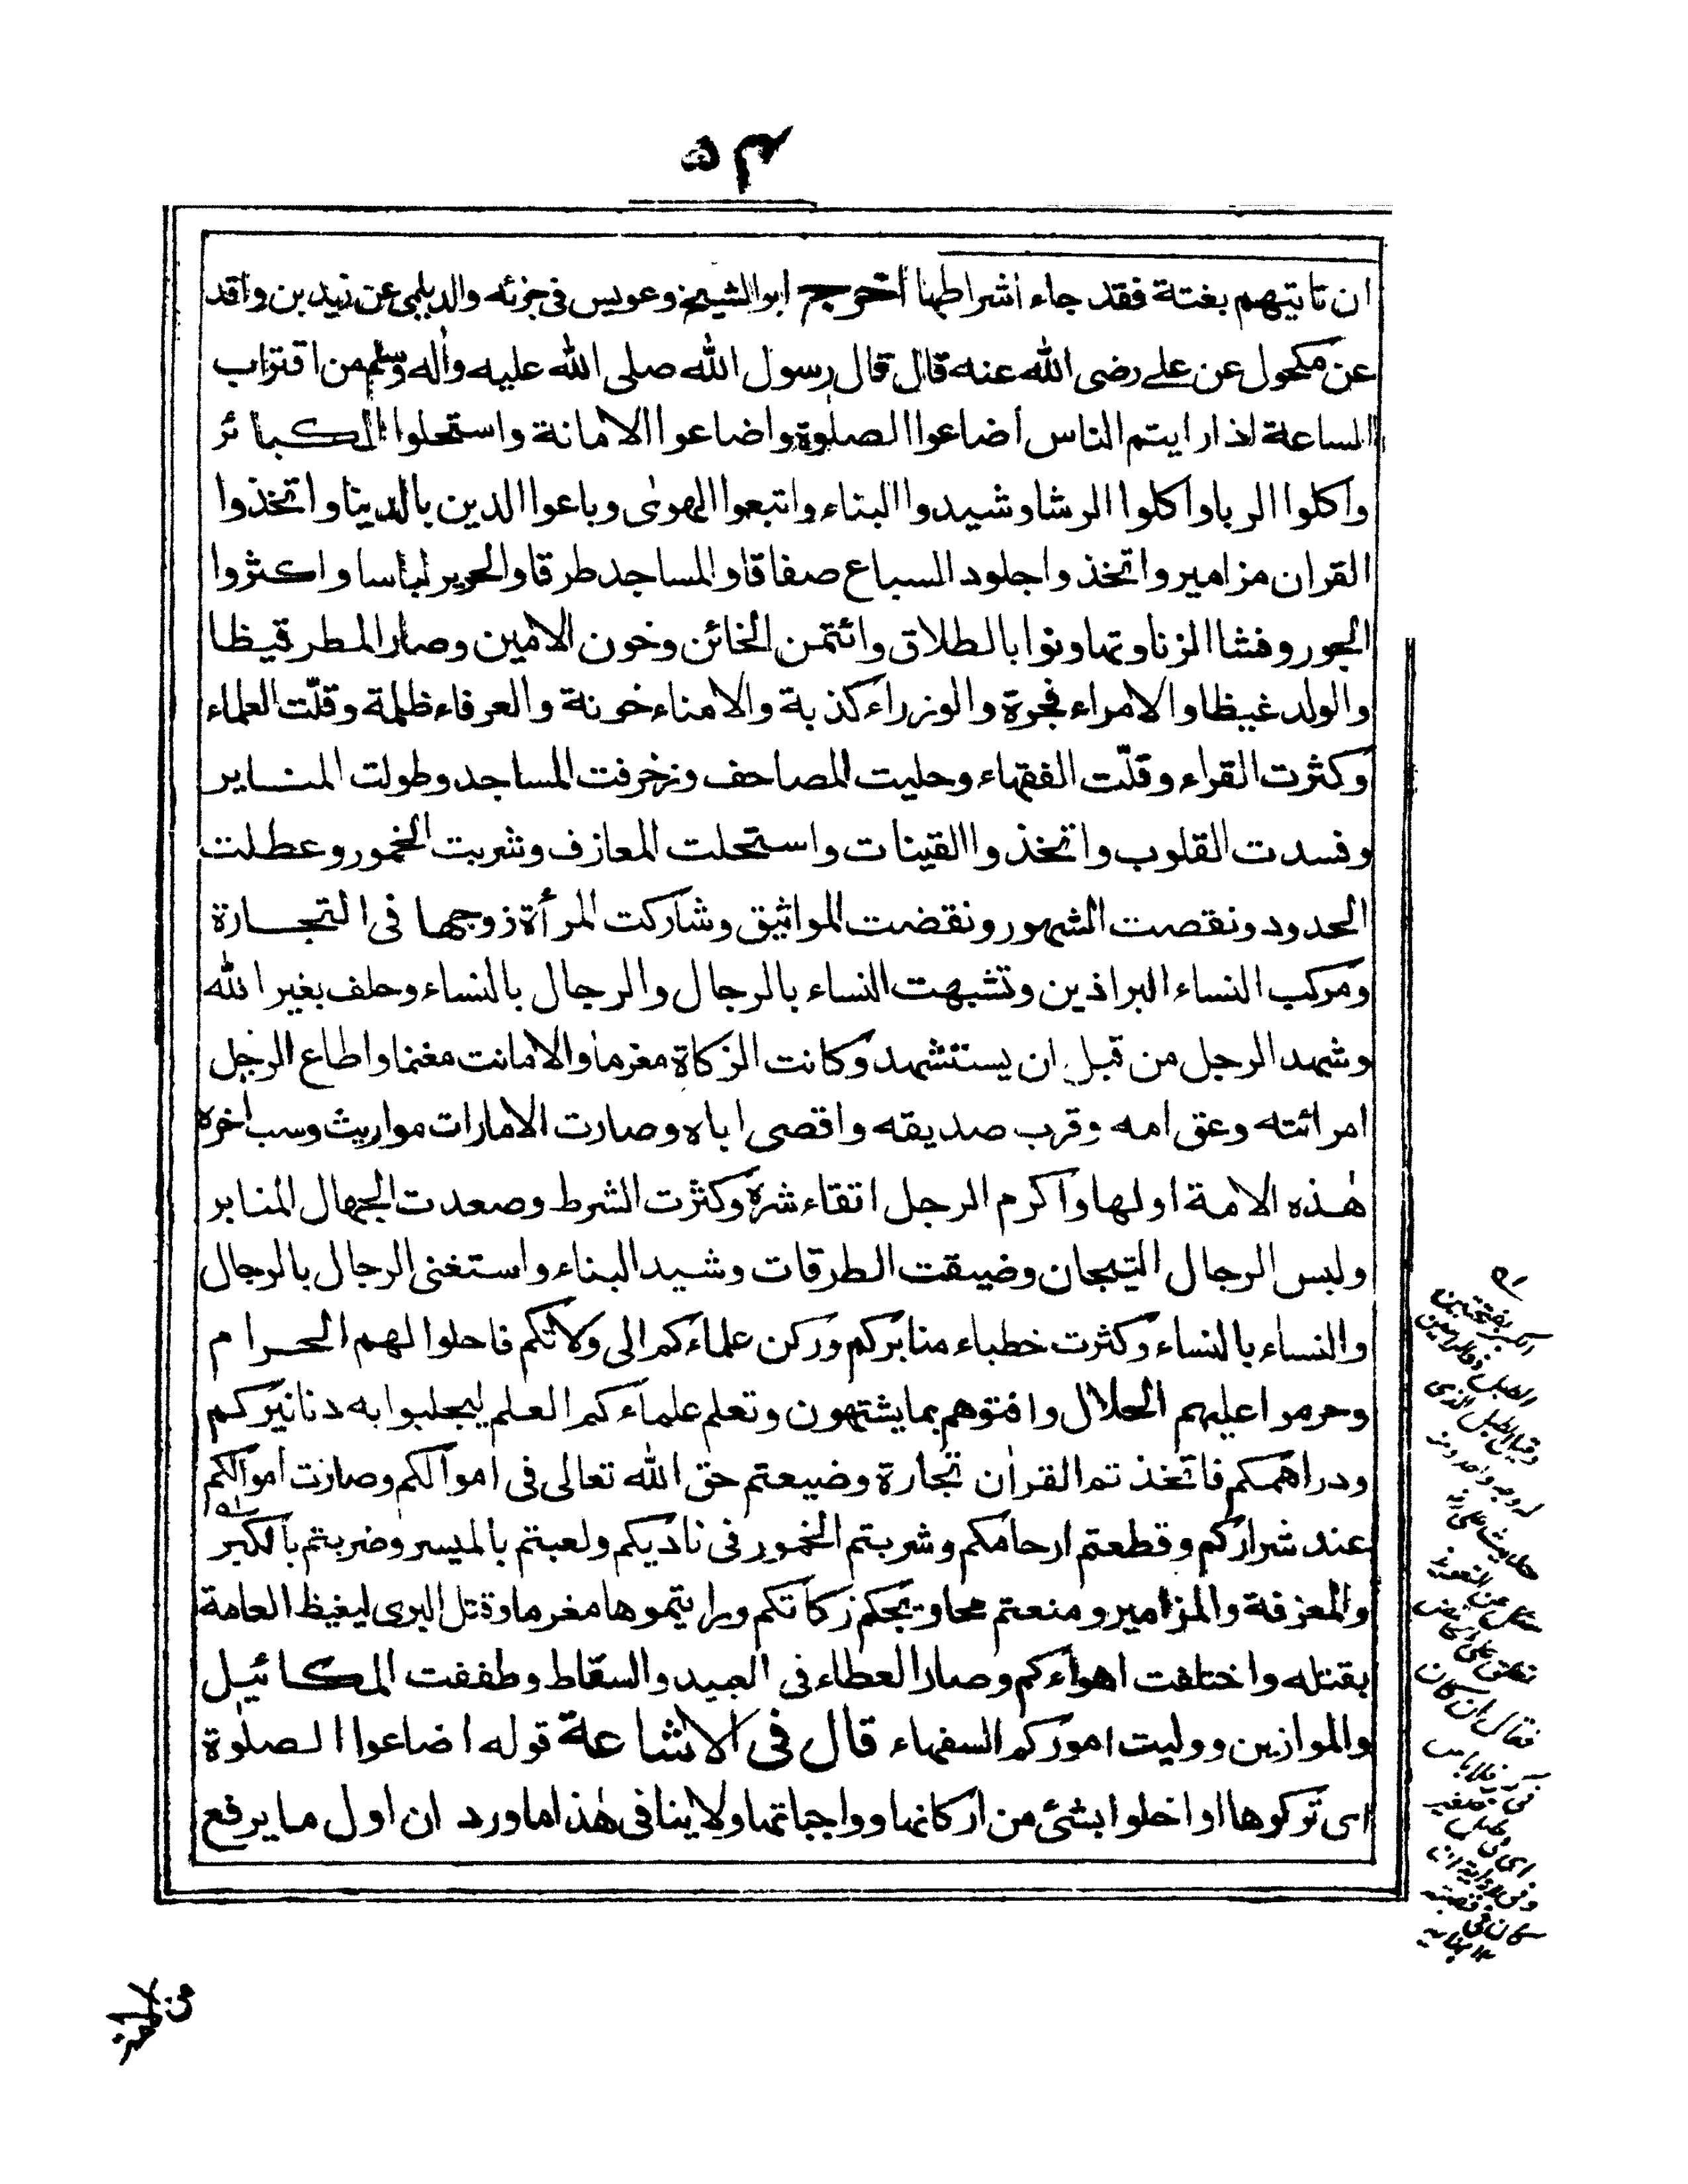 ٥٤
ان تاتيهم بغتة فقد جاء اشراطها اخرج ابوالشيخ وعويس فى جزئه والديلمى عن زيد بن واقد
عن مكحول عن على رضى الله عنه قال قال رسول الله صلى الله عليه واله وسلم من اقتراب
الساعة اذا رايتم الناس اضاعوا الصلوة واضاعوا الامانة واستحلوا الكبائر
واكلوا الربا واكلوا الرشا وشيدوا البناء واتبعوا الهوى وباعوا الدين بالدينا واتخذوا
القران مزامير واتخذوا جلود السباع صفاقا والمساجد طرقا والحرير لباسا واكثروا
الجور وفشا الزنا وتهاونوا بالطلاق وائتمن الخائن وخون الامين وصار المطر قيظا
والولد غيظا والامراء فجرة والوزراء كذبة والامناء خونة والعرفاء ظلمة وقلّت العلماء
وكثرت القراء وقلّت الفقهاء وحليت المصاحف وزخرفت المساجد وطولت المنابر
وفسدت القلوب واتخذوا القينات واستحلت المعازف وشربت الخمور وعطلت
الحدود ونقصت الشهور ونقضت المواثيق وشاركت المرأة زوجها فى التجارة
ومركب النساء البراذين وتشبهت النساء بالرجال والرجال بالنساء وحلف بغير الله
وشهد الرجل من قبل ان يستشهد وكانت الزكاة مغرما والامانت مغنما واطاع الرجل
امرائته وعق امه وقرب صديقه واقصى اباه وصارت الامارات مواريث وسب اخره
هذه الامة اولها واكرم الرجل اتقاء شره وكثرت الشرط وصعدت الجهال المنابر
ولبس الرجال التيجان وضيقت الطرقات وشيد البناء واستغنى الرجال بالرجال
والنساء بالنساء وكثرت خطباء منابركم وركن علماءكم الى ولاتكم فاحلوا لهم الحرام
وحرموا عليهم الحلال وافتوهم بما يشتهون وتعلم علماءكم العلم ليجلبوا به دنانيركم
ودراهمكم فاتخذ تم القران تجارة وضيعتم حق الله تعالى فى اموالكم وصارت اموالكم
عند شراركم وقطعتم ارحامكم وشربتم الخمور فى ناديكم ولعبتم بالميسر وضربتم بالكبر
والمعزفة والمزامير ومنعتم محاويجكم زكاتكم ورايتموها مغرما وقتل البرى ليغيظ العامة
بقتله واختلفت اهواءكم وصار العطاء فى العبيد والسقاط وطففت المكائيل
والموازين ووليت اموركم السفهاء قال فى الاشاعة قوله اضاعوا الصلوة
اى تركوها او اخلوا بشئ من اركانها وواجباتها ولاينا فى هذا ما ورد ان اول ما يرفع
الكبر بفتحتين
الطبل
وقيل الطبل الذى
له وجه واحد ومنه